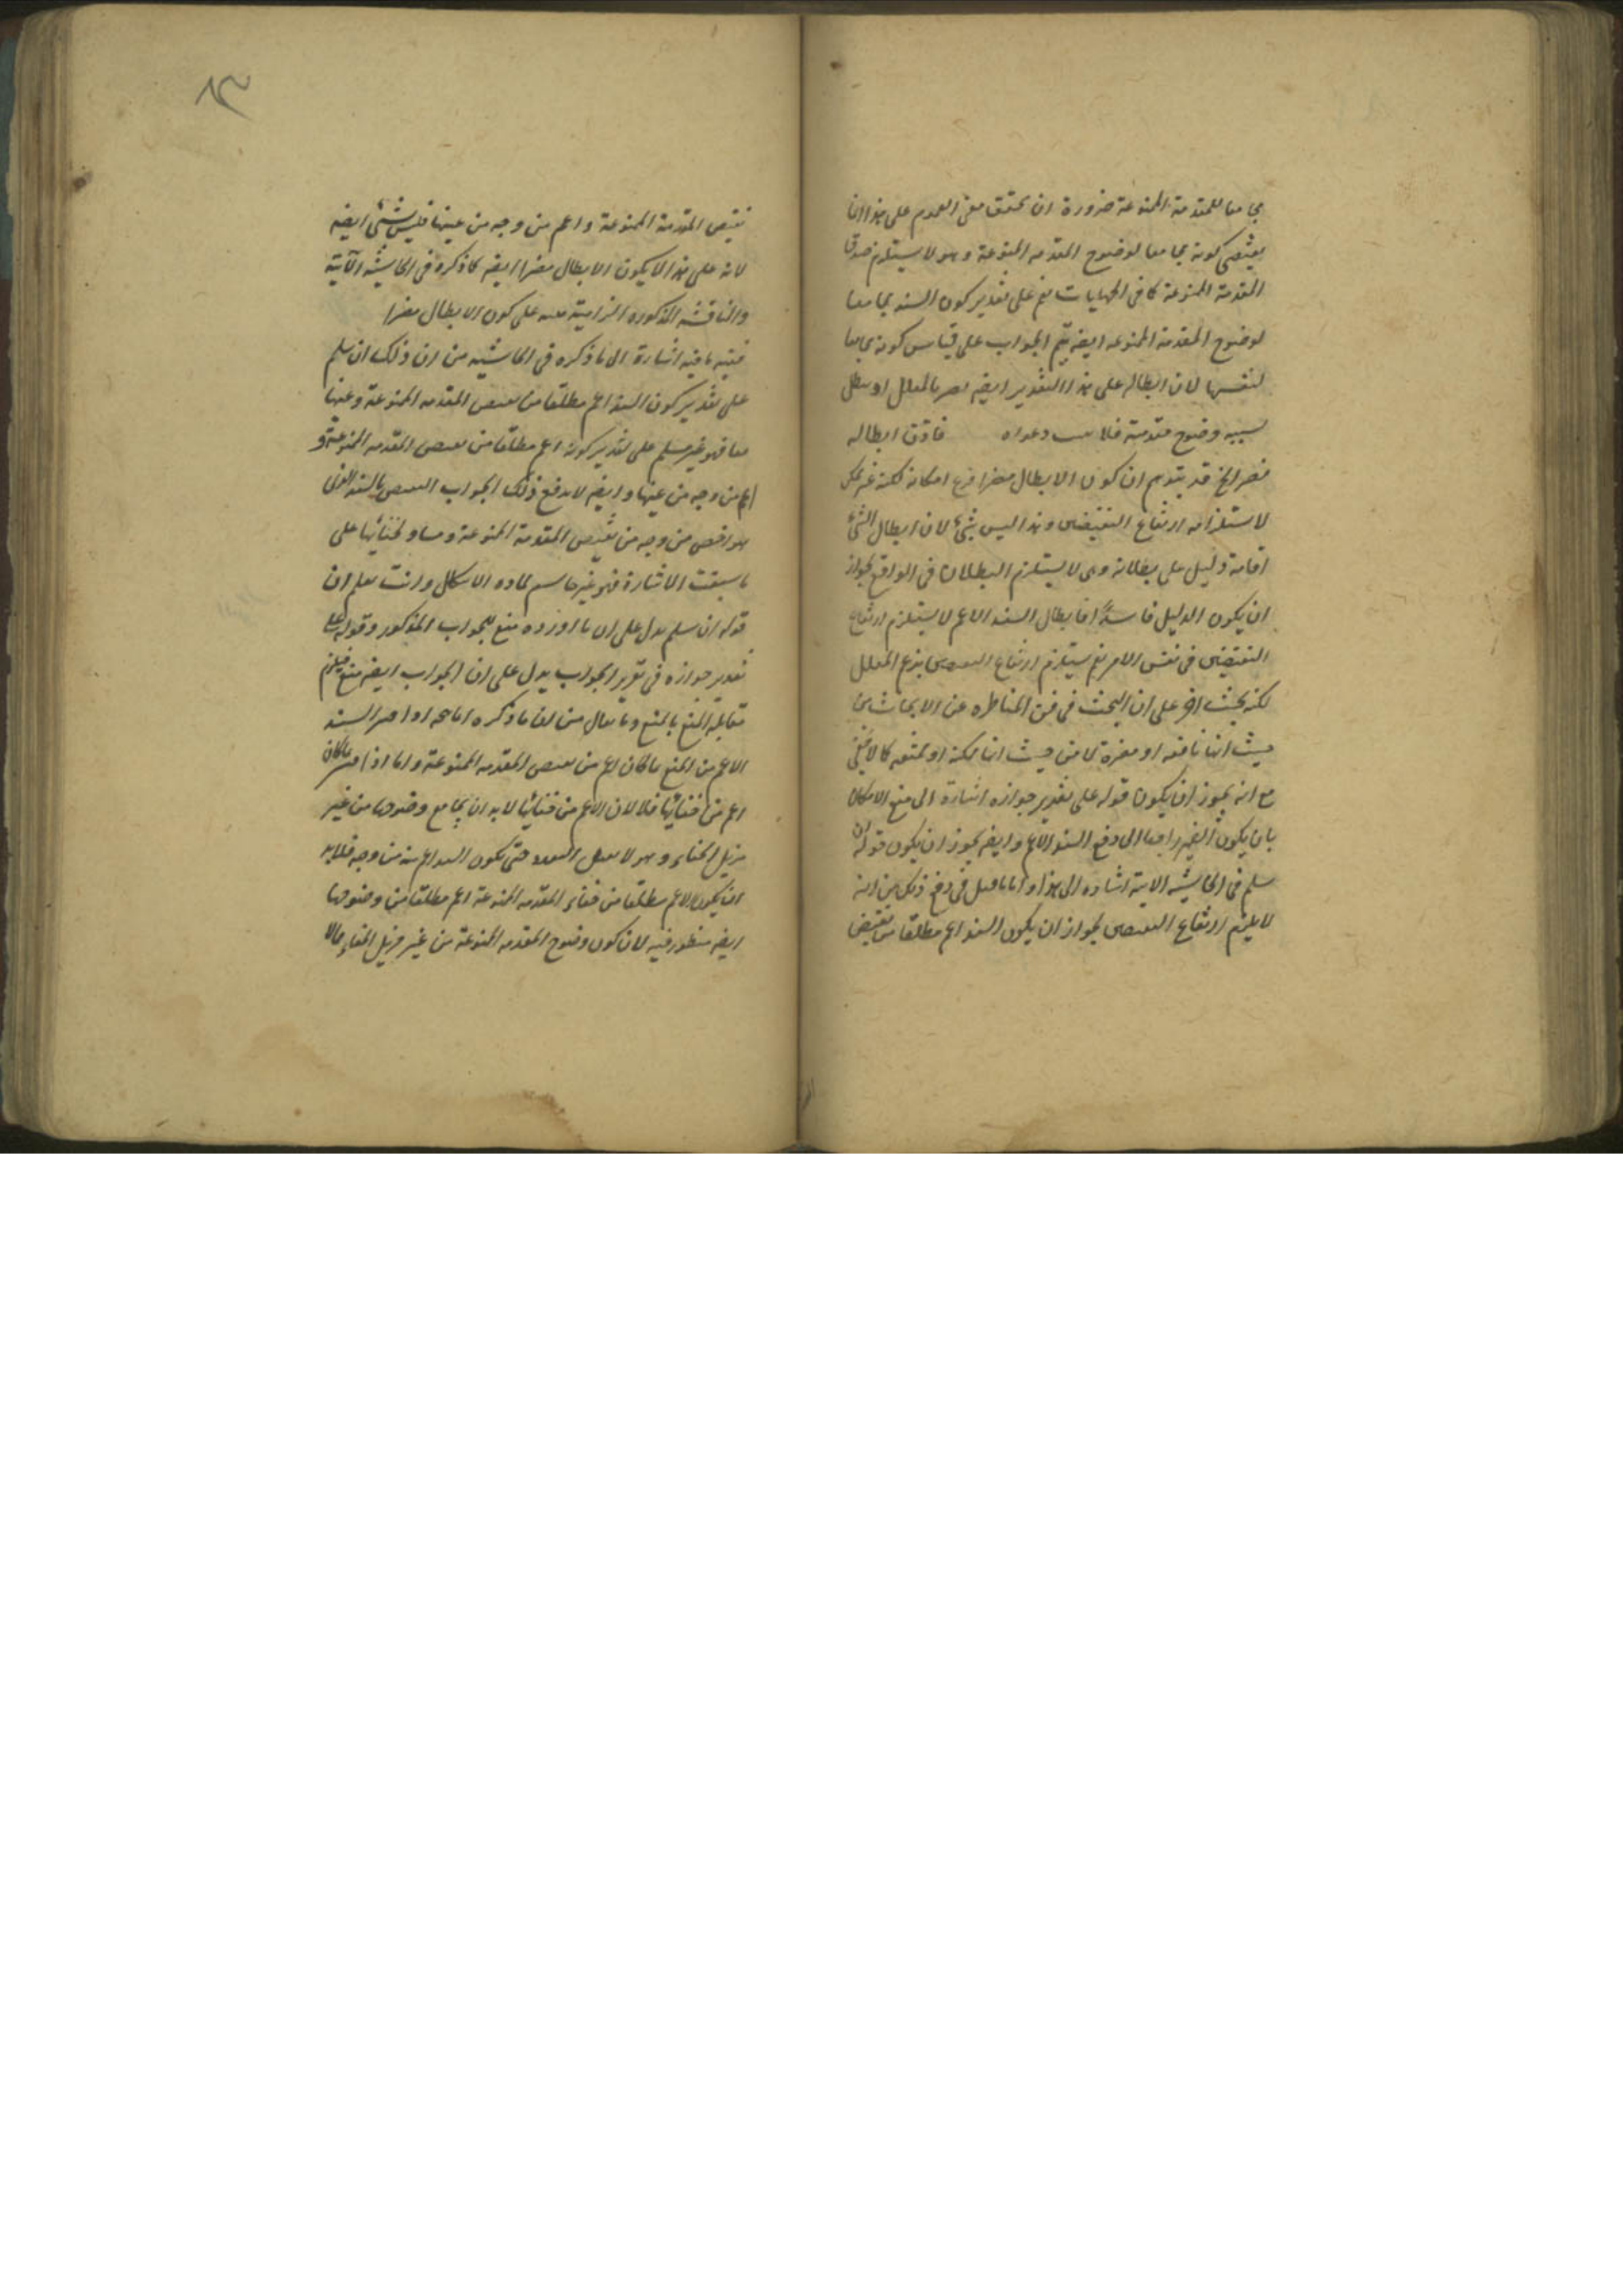 مجامعا للمقدمة الممنوعة ضرورة ان تحقق معنى العموم على هذا انما
يقتضى كونه مجامعا لوضوح المقدمه الممنوعة وهو لا يستلزم صدق
المقدمة الممنوعة كما فى نعم على تقدير كون السند مجامعا
لوضوح المقدمة الممنوعه ايضه يتم الجواب على قياس كونه مجامعا
لنفسها لان ابطاله على هذا التقدير ايضه يضر بالمعلل اذ يبطل
بسببه وضوح مقدمته فلا يثبت دعواه فاذن ابطاله
مضر الخ قد يتوهم ان كون الابطال مضرا فرع امكانه لكنه غير ممكن
لاستلزامه ارتفاع النقيضين وهذا ليس بشئ لان ابطال الشئ
اقامة دليل على بطلانه وهى لا يستلزم البطلان فى الواقع لجواز
ان يكون الدليل فاسدا فابطال السند الاعم لا يستلزم ارتفاع
النقيضين فى نفس الامر نعم يستلزم ارتفاع النقيضين بزعم المعلل
لكنه بحث اخر على ان البحث فى فن المناظره عن الابحاث من
حيث انها نافعه او مضرة لا من حيث انها ممكنه او ممتنعه كما لا يخفى
مع انه يجوز ان يكون قوله على تقدير جوازه اشارة الى منع الامكان
بان يكون الضمير راجعا الى دفع السند الاعم وايضه يجوز ان يكون قوله ان
سلم فى الحاشيه الاتية اشاره الى هذا واما ما قيل فى دفع ذلك من انه
لا يلزم ارتفاع النقيضين لجواز ان يكون السند اعم مطلقا من نقيض
نقيض المقدمة الممنوعة واعم من وجه من عينها فليس بشئ ايضه
لانه على هذا لا يكون الابطال مضرا ايضه كما ذكره فى الحاشيه الآتية
والمناقشه المذكوره الزامية مبنيه على كون الابطال مضرا
ففيه ما فيه اشارة الى ما ذكره فى الحاشيه من ان ذلك ان سلم
على تقدير كون السند اعم مطلقا من نقيض المقدمه الممنوعة وعينها
معا فهو غير مسلم على تقدير كونه اعم مطلقا من نقيض المقدمه الممنوعة و
اعم من وجه من عينها وايضه لا يدفع ذلك الجواب النقض بالسند الذى
هو اخص من وجه من نقيض المقدمة الممنوعة ومساو لخفائها على
ما سبقت الاشارة فهو غير حاسم لماده الاشكال وانت تعلم ان
قوله ان سلم يدل على ان ما اورده منع للجواب المذكور وقوله على
تقدير جوازه فى تقرير الجواب يدل على ان الجواب ايضه منع فيلزم
مقابله المنع بالمنع وما يقال من ان ما ذكره انما يتجه اذا فسر السند
الاعم من المنع بما كان اعم من نقيض المقدمه الممنوعة واما اذا فسر بما كان
اعم من خفائها فلا لان الاعم من خفائها لا بد ان يجامع وضوحها من غير
مزيل الخفاء وهو لا يقبل التعدد حتى يكون السند اعم منه من وجه فلا بد
ان يكون الاعم مطلقا من خفاء المقدمه الممنوعة اعم مطلقا من وضوحها
ايضه منظور فيه لان كون وضوح المقدمه الممنوعة من غير مزيل الخفاء مما لا
٨٣